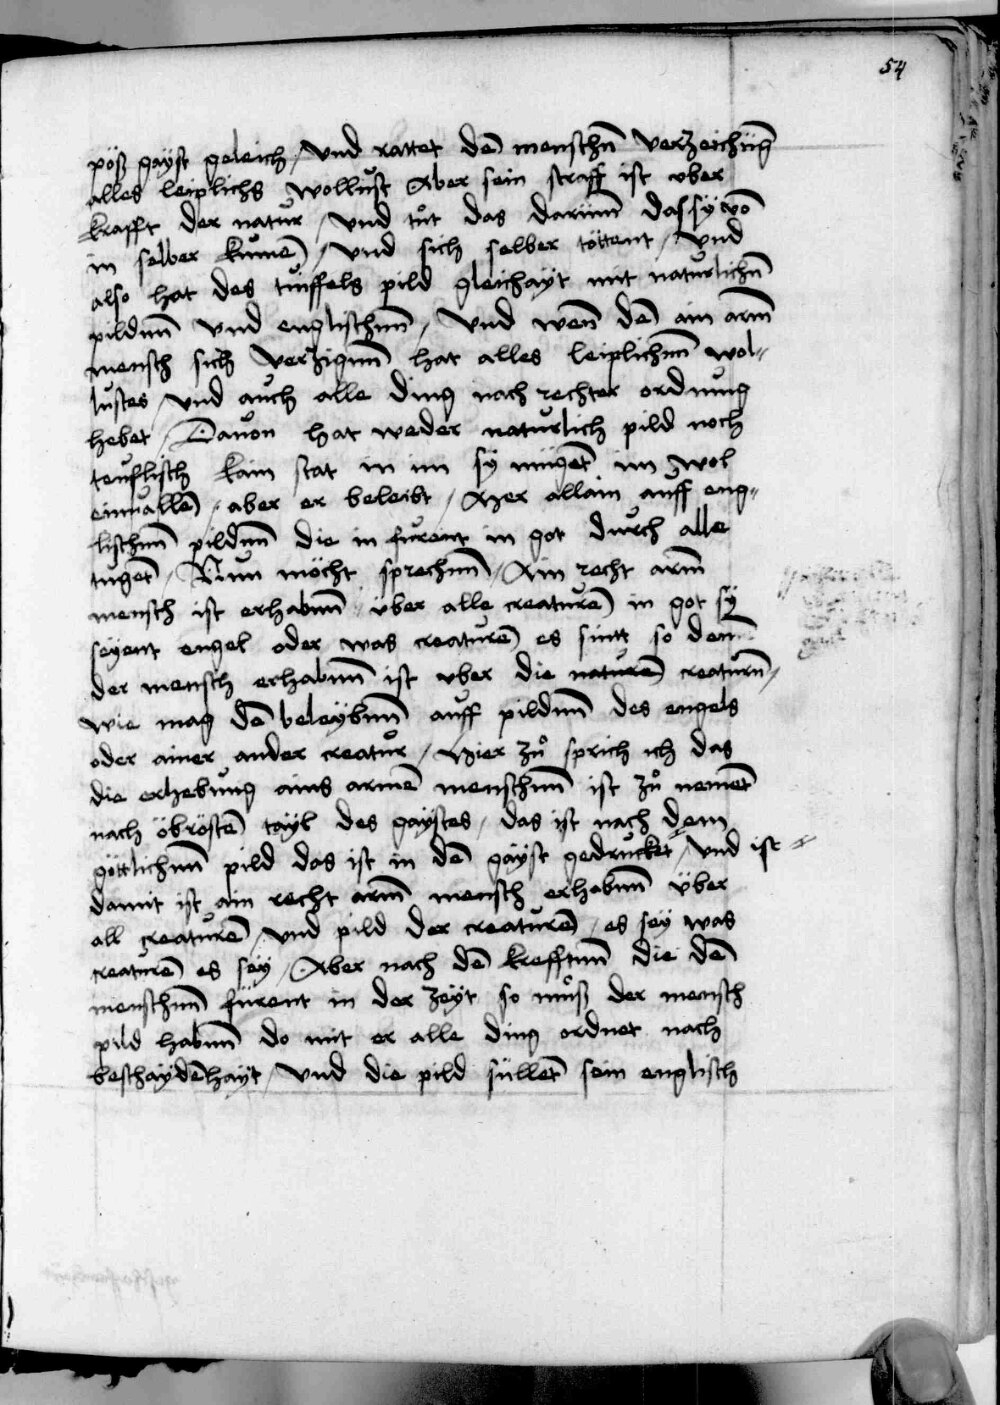 54
pöß gäyst geleich / vnd rattet de͂ mensch͂n verzeichu͂g
alles leiplichs wollust Aber sein straff ist vber
krafft der natur / vnd tůt das daru͂m das sÿ vo͂
in selber kume͂ / vnd sich selber töttent / vnd
also hat des tuiffels pild gleichayt mit naturlich͂n
pildun͂ vnd englischun͂ / vnd wen͂ de͂ ain arm͂
mensch sich verzigun͂ hat alles leiplichun͂ wol=
lustes / vnd auch alle ding nach rechter ordnung
hebet / Dauon hat weder naturlich pild noch
teuflisch kain stat in im sÿ müget͂ im wol
einuallen͂ / aber er beleibt / Mer allain auff eng=
lischun͂ pildun͂ die in furent in got durch alle
tuget͂ / Nun möcht sprechun͂ / Ain recht arm͂
mensch ist erhabun͂ über alle creature͂ in got sÿ
seÿent engel oder was creature͂ es sintt so denn
der mensch erhabun͂ ist vber die nature͂ creaturn͂ /
wie mag de͂ beleÿbun͂ auff pildun͂ des engels
oder ainer ander creatur / Hier zů sprich ich das
die erhebung ains arme͂ menschun͂ ist zů neme͂t
nach öbröste͂ tayl des gaÿstes / das ist nach dem
göttlichun͂ pild das ist in de͂ gäyst gedrucket / vnd ist
damit ist ain recht arm͂ mensch erhabun͂ über
all creature͂ / vnd pild der creature͂ / es sey was
creature͂ es sey / Aber nach de͂ krefftun͂ die de͂
menschun͂ fürent in der zeÿt so můß der mensch
pild habun͂ do mit er alle ding ordnet nach
beschayde͂hayt / vnd die pild süllet͂ sein englisch